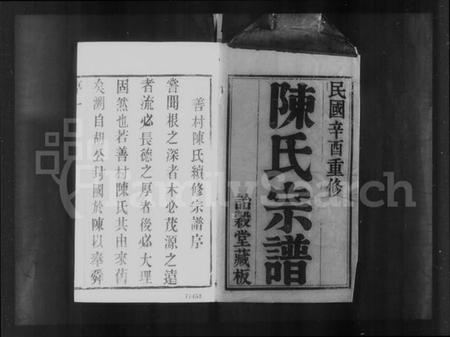 民國辛酉重修
陳氏宗譜
詒穀堂藏板
善村陳氏續修宗譜序
嘗聞根之深者木必茂源之遠
者流必長德之厚者後必大理
固然也若善村陳氏其由來舊
矣溯自胡公封國於陳以奉舜
FamilySearch